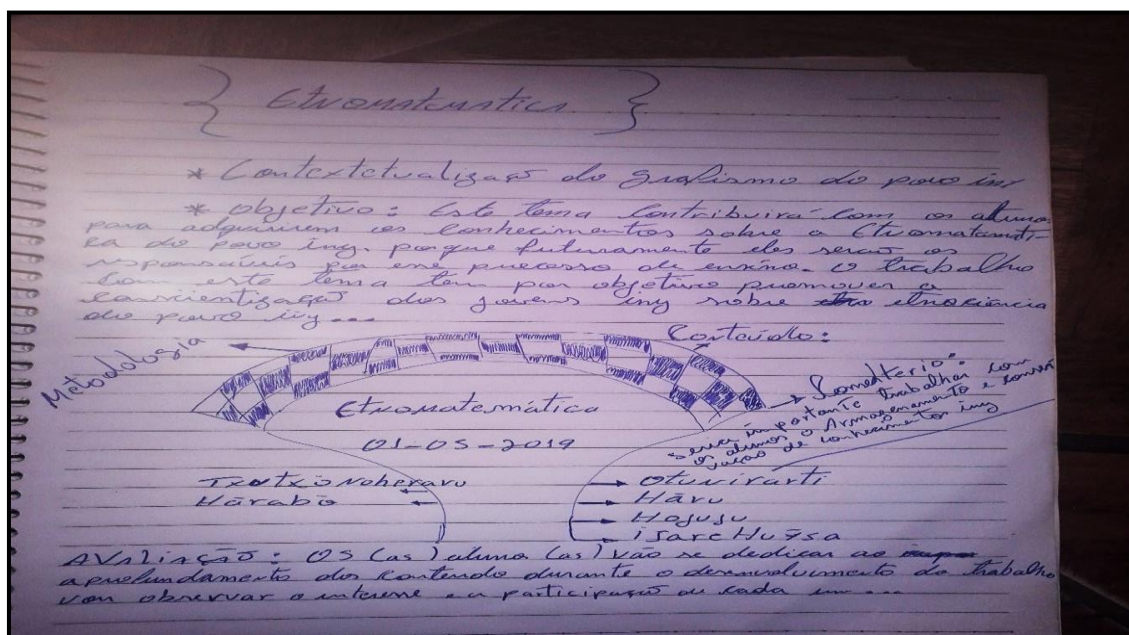 { Etnomatematica }
* Contextetualização do Grafismo do povo iny
* Objetivo: Este tema Contribuirá com os alunos
para adquirirem os conhecimentos sobre a Etnomatemati-
ca do povo iny. porque futuramente eles serão os
responsáveis por esse processo de ensino. O trabalho
com este tema tem por objetivo promover a
conscientização dos jovens iny sobre etnociência
do povo iny ...
Conteúdo:
Metodologia
Etnomatemática
01-05-2019
Comentério:
seria importante trabalhar com
os alunos o Armazenamento e conser
vação de conhecimentos iny
Hãrabò
Hãru
AVAliAção: OS (as) aluna (as) vão se dedicar ao
aprofundamento dos conteudo durante o desenvolvimento do trabalho
vou observar o interesse e a participação de cada um ...